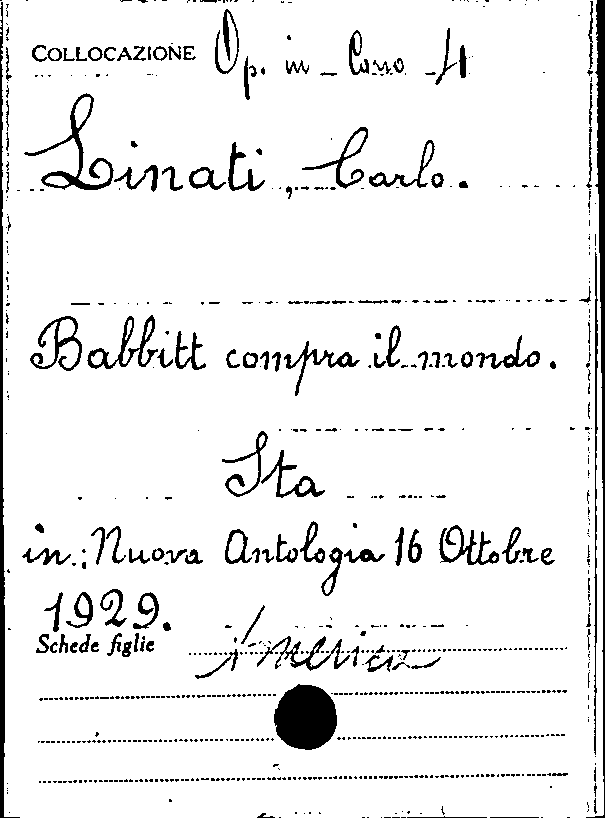 COLLOCAZIONE Op. in - Cono 4
Linati, Carlo.
Babbitt compra il mondo.
Sta
in: Nuova Antologia 16 Ottobre
1929.
Schede figlie America